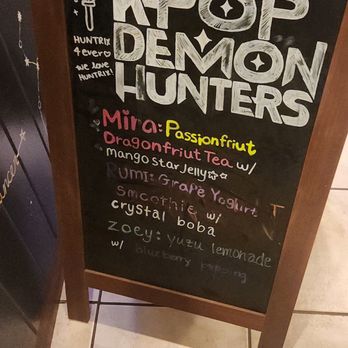 KPOP
DEMON
HUNTERS
HUNTRIX
4ever♡
we love
HUNTRIX!
Mira: Passionfriut
Dragonfriut Tea w/
mango star Jelly☆☆
Rumi: Grape Yogurt
Smoothie w/
crystal boba
Zoey: yuzu lemonade
w/ blueberry popping